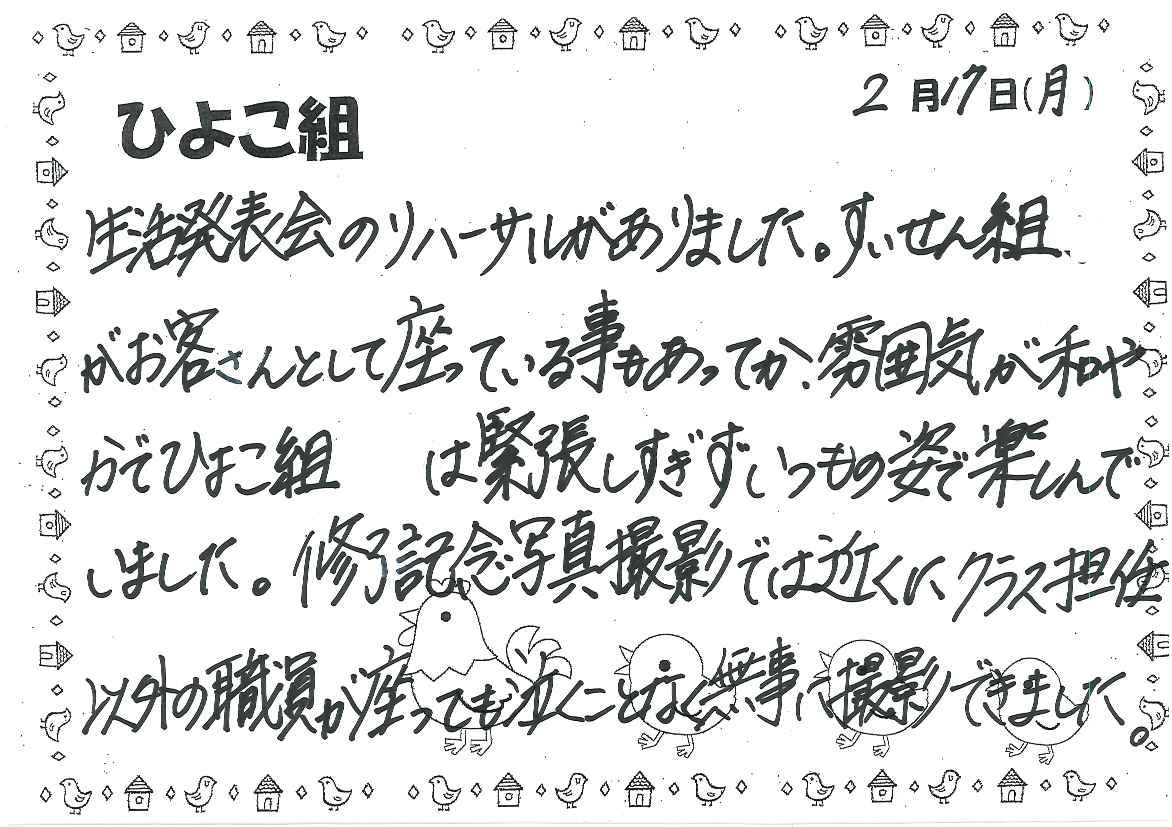 2月17日(月)
ひよこ組
生活発表会のリハーサルがありました。すいせん組
がお客さんとして座っている事もあってか、雰囲気が和や
かでひよこ組 は緊張しすぎずいつもの姿で楽しんで
いました。修了記念写真撮影では近くにクラス担任
以外の職員が座っても泣くことなく無事に撮影できました。